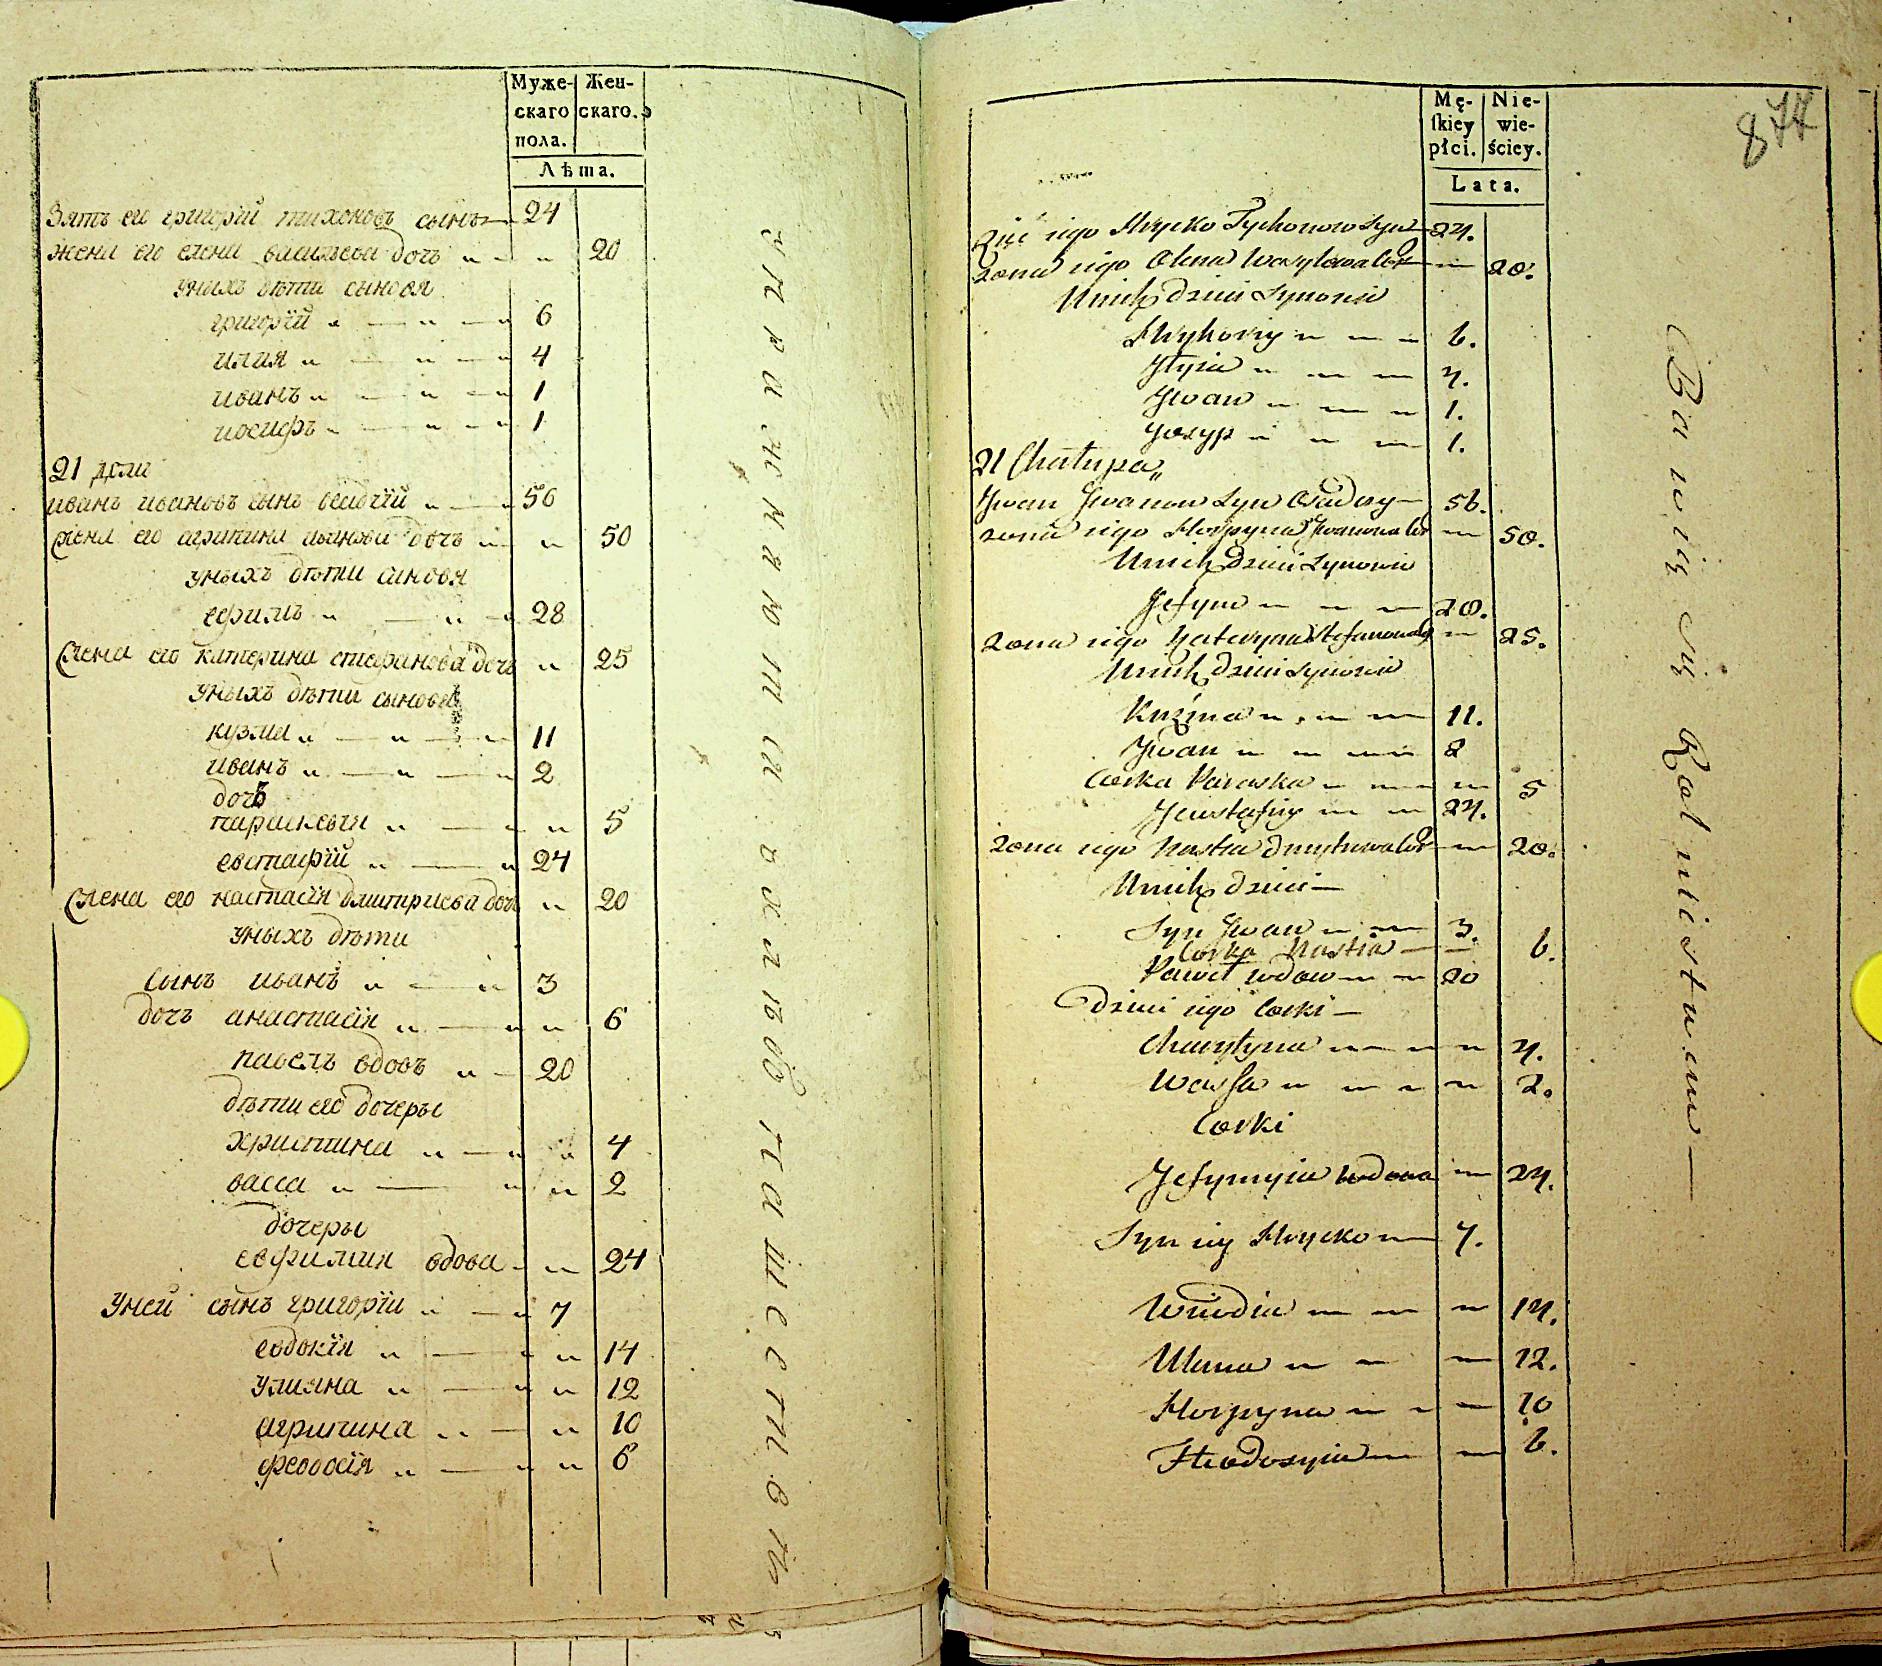 Муже-
скаго
пола.
Жен-
скаго.
Лѣта.
Зять его григорїй тихоновъ сынъ 24
жена его елена васильева дочъ 20
Уныхъ дѣти сыновя
григорїй 6
илия 4
иванъ 1
иосифъ 1
21 дели
иванъ ивановъ сынъ осадчїй 56
жена его агрипина иванова дочъ 50
уныхъ дѣти синовя
ефимъ 28
жена его катерина стефанова дочъ 25
уныхъ дѣти сыновя
кузма 11
иванъ 2
дочъ
параскевия 5
евстафїй 24
жена его настасїя дмитриева дочъ 20
уныхъ дѣти
сынъ иванъ 3
дочъ анастасїя 6
павелъ вдовъ 20
дѣти его дочеры
христина 4
васса 2
дочеры
евфимия вдова 24
Уней сынъ григорїи 7
евдокїя 14
улияна 12
агрипина 10
феодосїя 6
упражняются въ хлебопашествѣ
877
Mę-
skiey
płci.
Nie-
wie-
ściey.
Lata.
Zięć iego Hrycko Tychonow Syn 24.
zona iego Olena Wasylowa Cor 20.
Unich dzieci Synowie
Hryhoriy 6.
Jllyia 4.
Jwan 1.
Josyp 1.
21 Chałupa
Jwan Jwanow Syn Osadczy 56.
zona iego Horpyna Jwanowa Cor 50.
Unich Dzieci Synowie
Jefym 28.
zona iego Kateryna Stefanowa 25.
Unich Dzieci Synowie
Kuzma 11.
Jwan 2
Corka Paraska 5
Jewstafiy 24.
zona iego Nastia Dmytrowa Cor 20.
Unich dzieci
Syn Jwan 3.
Corka Nastia 6.
Paweł wdow 20
Dzieci iego Corki
Chrystyna 4.
Wassa 2.
Corki
Jefymyia wdowa 24.
Syn iey Hrycko 7.
Wdodia 14.
Uliana 12.
Horpyna 10
Fteodosyia 6.
Bawią się Rolnictwem